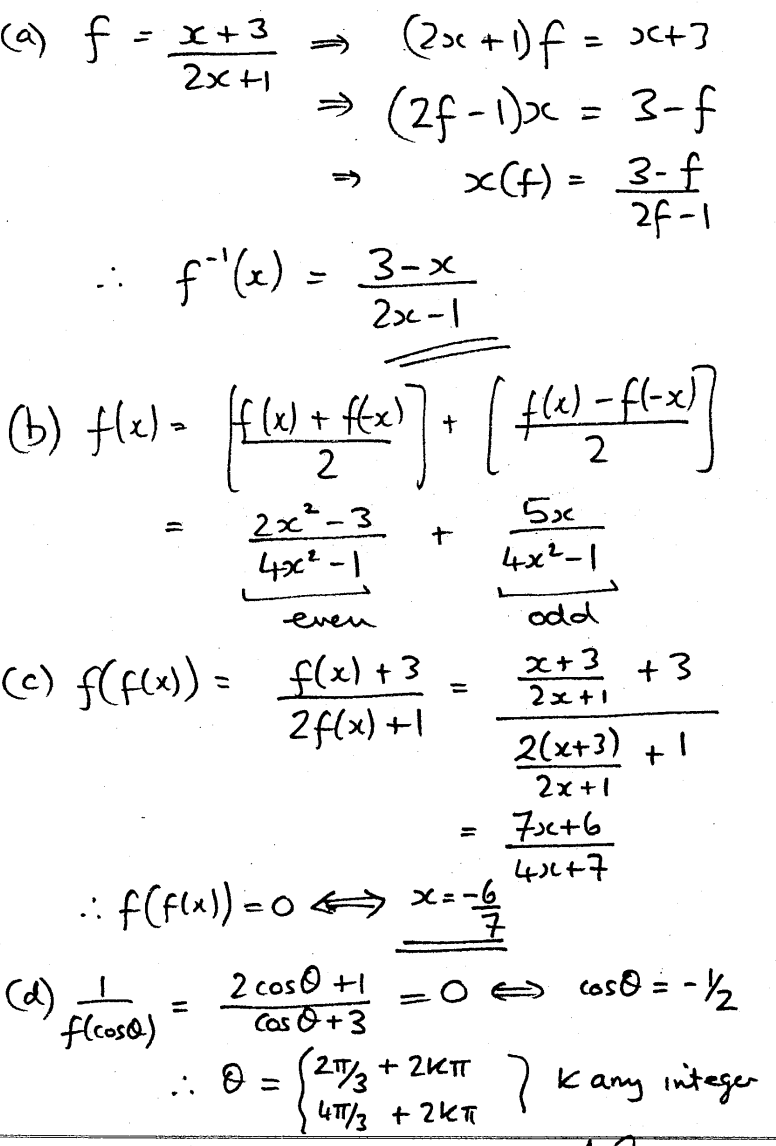 (a) f = (x+3)/(2x+1) ⇒ (2x+1)f = x+3
⇒ (2f-1)x = 3-f
⇒ x(f) = (3-f)/(2f-1)
∴ f⁻¹(x) = (3-x)/(2x-1)
(b) f(x) = [(f(x) + f(-x))/2] + [(f(x) - f(-x))/2]
= (2x²-3)/(4x²-1) + 5x/(4x²-1)
even odd
(c) f(f(x)) = (f(x)+3)/(2f(x)+1) = ((x+3)/(2x+1) + 3)/(2(x+3)/(2x+1) + 1)
= (7x+6)/(4x+7)
∴ f(f(x)) = 0 ⟺ x = -6/7
(d) 1/f(cosθ) = (2cosθ+1)/(cosθ+3) = 0 ⟺ cosθ = -1/2
∴ θ = { 2π/3 + 2kπ
4π/3 + 2kπ } k any integer